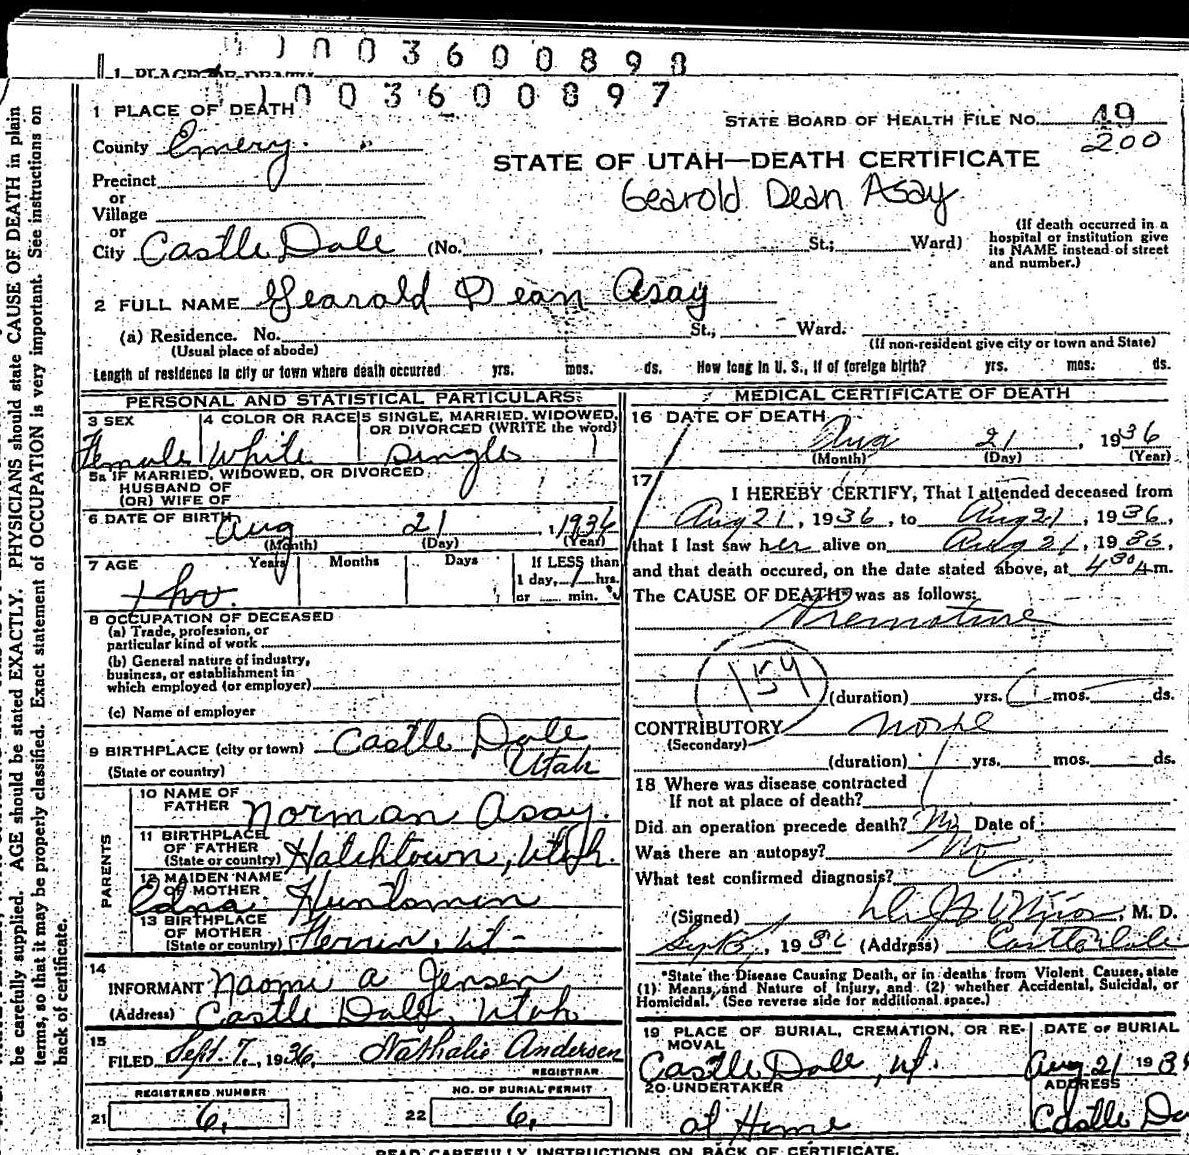 1003600898
1 PLACE OF DEATH
1003600897
1 PLACE OF DEATH
STATE BOARD OF HEALTH FILE No. 49
200
County Emery
STATE OF UTAH—DEATH CERTIFICATE
Precinct
Gearold Dean Asay
or
Village
or
City Castle Dale (No. , St.; Ward)
(If death occurred in a hospital or institution give its NAME instead of street and number.)
2 FULL NAME Gearald Dean Asay
(a) Residence. No. St., Ward.
(Usual place of abode) (If non-resident give city or town and State)
Length of residence in city or town where death occurred yrs. mos. ds. How long in U. S., if of foreign birth? yrs. mos. ds.
PERSONAL AND STATISTICAL PARTICULARS
3 SEX 4 COLOR OR RACE 5 SINGLE, MARRIED, WIDOWED, OR DIVORCED (WRITE the word)
Female White Single
5a IF MARRIED, WIDOWED, OR DIVORCED
HUSBAND OF
(OR) WIFE OF
6 DATE OF BIRTH Aug 21, 1936
(Month) (Day) (Year)
7 AGE Years Months Days If LESS than
1 day, 1 hrs.
or ... min.
1 hr.
8 OCCUPATION OF DECEASED
(a) Trade, profession, or
particular kind of work
(b) General nature of industry,
business, or establishment in
which employed (or employer)
(c) Name of employer
9 BIRTHPLACE (city or town) Castle Dale
(State or country) Utah
PARENTS
10 NAME OF
FATHER Norman Asay.
11 BIRTHPLACE
OF FATHER
(State or country) Hatchtown, Utah.
12 MAIDEN NAME
OF MOTHER
Edna Huntsman
13 BIRTHPLACE
OF MOTHER
(State or country) Ferron, Ut-
14
INFORMANT Naomi A Jensen
(Address) Castle Dale, Utah
15
FILED Sept. 7, 1936, Nathalie Andersen
REGISTRAR
REGISTERED NUMBER NO. OF BURIAL PERMIT
21 6. 22 6.
MEDICAL CERTIFICATE OF DEATH
16 DATE OF DEATH
Aug 21, 1936
(Month) (Day) (Year)
17
I HEREBY CERTIFY, That I attended deceased from
Aug 21, 1936, to Aug 21, 1936,
that I last saw her alive on Aug 21, 1936,
and that death occured, on the date stated above, at 4 30 A m.
The CAUSE OF DEATH* was as follows:
Premature
154
(duration) yrs. mos. ds.
CONTRIBUTORY none
(Secondary)
(duration) yrs. mos. ds.
18 Where was disease contracted
If not at place of death?
Did an operation precede death? No Date of
Was there an autopsy? No
What test confirmed diagnosis?
(Signed) , M. D.
1936 (Address) Castle Dale
*State the Disease Causing Death, or in deaths from Violent Causes, state
(1) Means and Nature of Injury, and (2) whether Accidental, Suicidal, or
Homicidal. (See reverse side for additional space.)
19 PLACE OF BURIAL, CREMATION, OR REMOVAL DATE OF BURIAL
Castle Dale, Ut. Aug 21 193
20 UNDERTAKER ADDRESS
at Home Castle Da
READ CAREFULLY INSTRUCTIONS ON BACK OF CERTIFICATE.
be carefully supplied. AGE should be stated EXACTLY. PHYSICIANS should state CAUSE OF DEATH in plain
terms, so that it may be properly classified. Exact statement of OCCUPATION is very important. See instructions on
back of certificate.